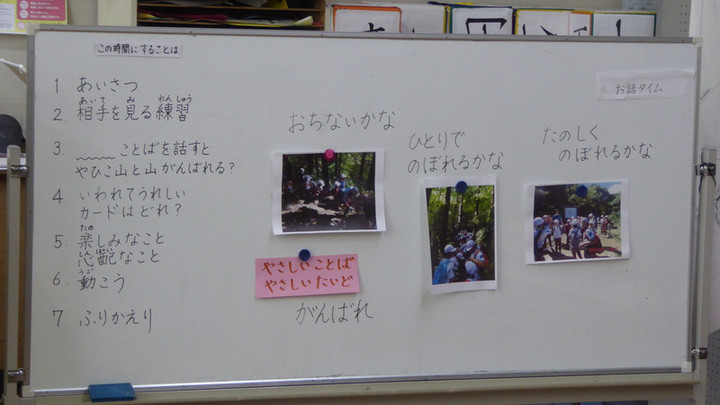 この時間にすることは
お話タイム
1. あいさつ
あいて み れんしゅう
2 相手を見る練習
3. 〰〰 ことばを話すと
やひこ山と山がんばれる?
4 いわれてうれしい
カードはどれ?
たの
5 楽しみなこと
しんぱい
心配なこと
うご
6. 動こう
7 ふりかえり
おちないかな
ひとりで
のぼれるかな
たのしく
のぼれるかな
やさしいことば
やさしいたいど
がんばれ